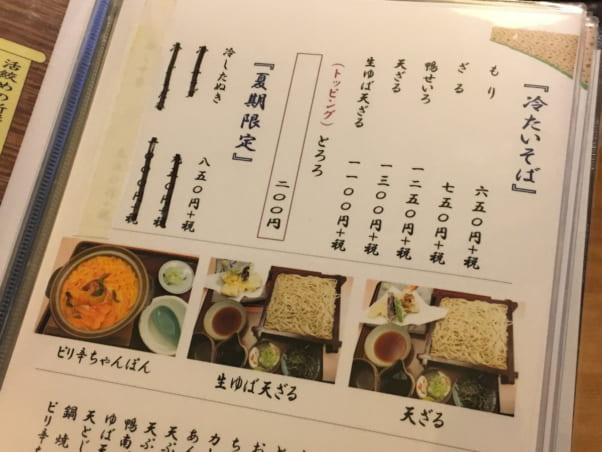 『冷たいそば』
もり 六五〇円+税
ざる 七五〇円+税
鴨せいろ 一二五〇円+税
天ざる 一三〇〇円+税
生ゆば天ざる 一一〇〇円+税
(トッピング)とろろ 二〇〇円
『夏期限定』
冷したぬき 八五〇円+税
円+税
天ざる
生ゆば天ざる
ピリ辛ちゃんぽん
天ぷ
鴨南
ゆば天
天とじ
鍋焼
ピリ辛ち